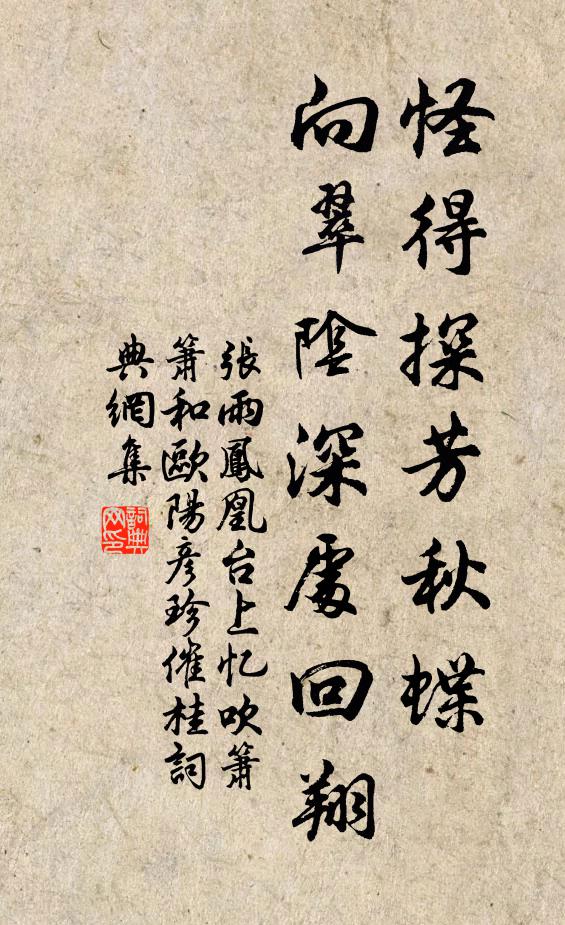 怪得探芳秋蝶
向翠陰深處回翔
張雨鳳凰台上忆吹簫
簫和歐陽彦珍催桂詞
典網集
詞典
网印